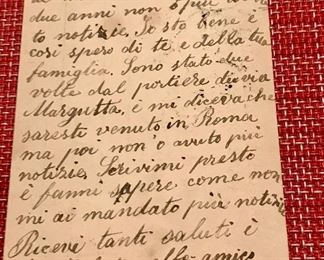 due anni non ò più
to notizie, Io sto bene è
così spero di te e della tua
famiglia. Sono stato due
volte dal portiere di via
Margutta, è mi diceva che
saresti venuto in Roma
ma poi non ò avuto più
notizie. Scrivimi presto
è fanni sapere come non
mi ai mandato più notizie
Ricevi tanti saluti è
amico